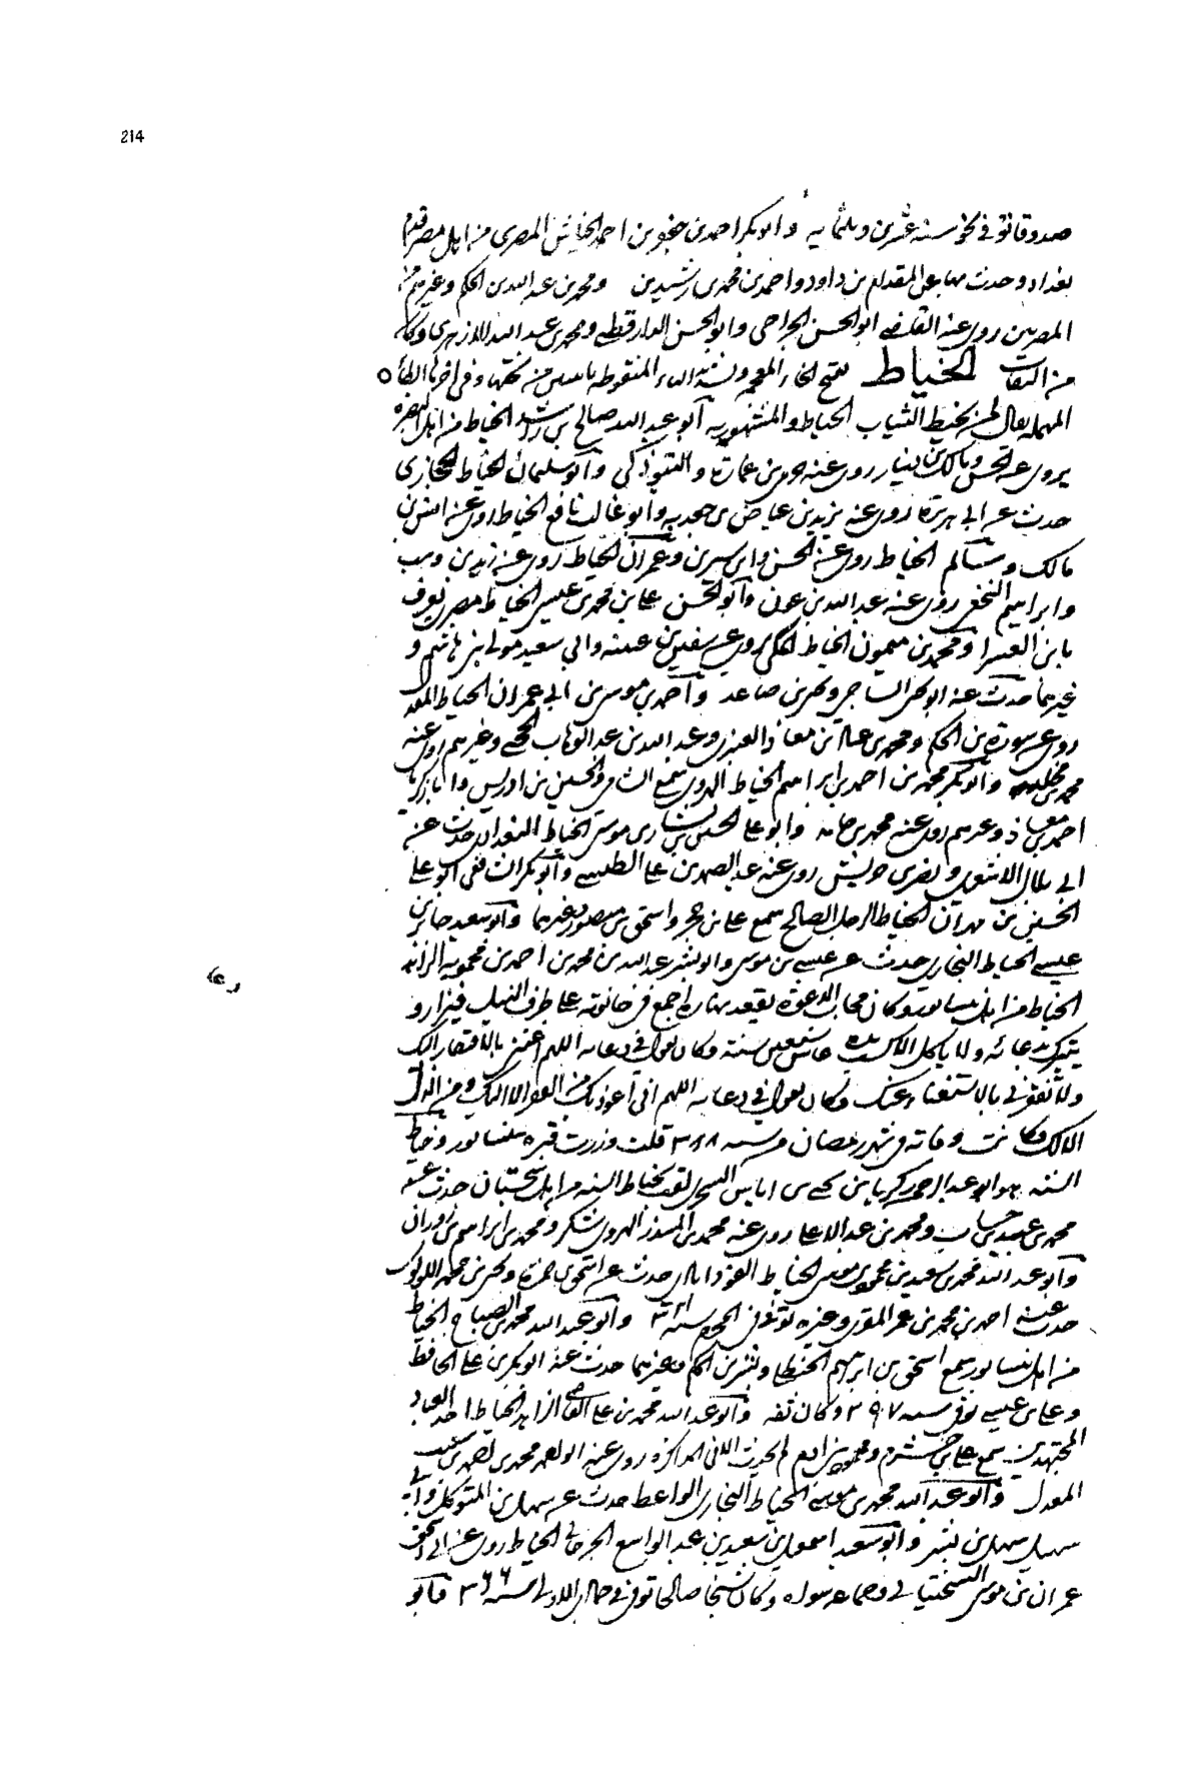 214
صدوقا توفى فى نحو سنة عشرين وثلثمايه وابو بكر احمد بن جعفر بن احمد الخياش المصرى من اهل مصر قدم
بغداد وحدث بها عن المقدام بن داود واحمد بن محمد بن رشيدين ومحمد بن عبد الله بن الحكم وغيرهم من
المصريين روى عنه القاضى ابو الحسن الجراحى وابو الحسن الدارقطنى ومحمد بن عبد الله الازهرى وكان
من الثقات الخياط بفتح الخاء المعجمه وتشديد الياء المنقوطه باثنتين من تحتها وفى اخرها الطاء
المهمله يقال لمن يخيط الثياب الخياط والمشهور به ابو عبد الله صالح بن راشد الخياط من اهل البصره
يروى عن الحسن ومالك بن دينار روى عنه حرمى بن عمارة والتبوذكى وابو سليمان الخياط الحجازى
حدث عن ابى هريرة روى عنه يزيد بن عياض بن جعدبه وابو غالب نافع الخياط روى عن انس بن
مالك وسالم الخياط روى عن الحسن وابن سيرين وعمران الخياط روى عن زيد بن وهب
وابراهيم النخعى روى عنه عبد الله بن عون وابو الحسن على بن محمد بن عيسى الخياط مصرى يعرف
بابن العسرا ومحمد بن ميمون الخياط المكى روى عن سفين بن عيينه وابى سعيد مولى بنى هاشم و
غيرهما حدث عنه ابو يحيى الساجى ويحيى بن صاعد واحمد بن موسى بن ابى عمران الخياط المعدل
روى عن سورة بن الحكم ومحمد بن عبد الله بن معاذ العنبرى وعبد الله بن عبد الوهاب الحجبى وغيرهم روى عنه
محمد بن مخلد وابو بكر محمد بن احمد بن ابراهيم الخياط الهروى سمع الشامى والحسين بن ادريس وابا زكريا
احمد بن معاذ وغيرهم روى عنه محمد بن وابو على الحسين بن بشار بن موسى الخياط البغدادى حدث عن
ابى بلال الاشعرى ونصر بن حريش روى عنه عبد الصمد بن على الطستى وابو بكر الشافعى ابو على
الحسين بن مهران الخياط الرجل الصالح سمع على بن حجر واسحق بن منصور وغيرهما وابو سعيد حاتم بن
عيسى الخياط البخارى حدث عن عيسى بن موسى وابو بشر عبد الله بن محمد بن احمد بن محمويه الزاهد
الخياط من اهل نيسابور وكان مجاب الدعوة يقعد نهاره اجمع فى حانوته على طرف فيزار و
يتبرك بدعائه ولا ياكل الا كسب يده عاش تسعين سنة وكان يقول فى دعائه اللهم اغننى بالافتقار اليك
ولا تفقرنى بالاستغناء عنك وكان يقول فى دعائه اللهم انى اعوذ بك من الفقر الا اليك ومن الذل
الا لك وكانت وفاته فى شهر رمضان من سنه ٣٨٨ قلت وزرت قبره بنيسابور وخياط
السنه هو ابو عبد الرحمن زكريا بن يحيى بن اياس السجزى لقب بخياط السنه من اهل سجستان حدث عن
محمد بن عبيد بن حساب ومحمد بن عبد الاعلى روى عنه محمد بن المنذر الهروى شكر ومحمد بن ابراهيم بن زوران
وابو عبد الله محمد بن سعيد بن محمود بن موسى الخياط حدث عن اسحق بن حمزة ويحيى بن محمد اللولوى
حدث عنه احمد بن محمد بن عمر المقرى وغيره توفى فى المحرم سنه وابو عبد الله محمد بن الصباح الخياط
من اهل نيسابور سمع اسحق بن ابراهيم الحنظلى وبشر بن الحكم وغيرهما حدث عنه ابو بكر بن على الحافظ
وعلى بن عيسى توفى سنه ٢٩٧ وكان ثقه وابو عبد الله محمد بن على القاضى الزاهد الخياط احد العباد
المجتهدين سمع على بن خشرم ومحمد بن رافع لم يحدث الا فى المذاكره روى عنه ابو
المعدل وابو عبد الله محمد بن موسى الخياط البخارى الواعظ حدث عن سهل بن المتوكل وابى
سهيل سهل بن بشر وابو سعد اسمعيل بن سعيد بن عبد الواسع الجرجانى الخياط روى عن ابى اسحق
عمران بن موسى السختيانى وجماعه سواه وكان شيخا صالحا توفى فى جمادى الاولى سنه ٣٦٦ وابو